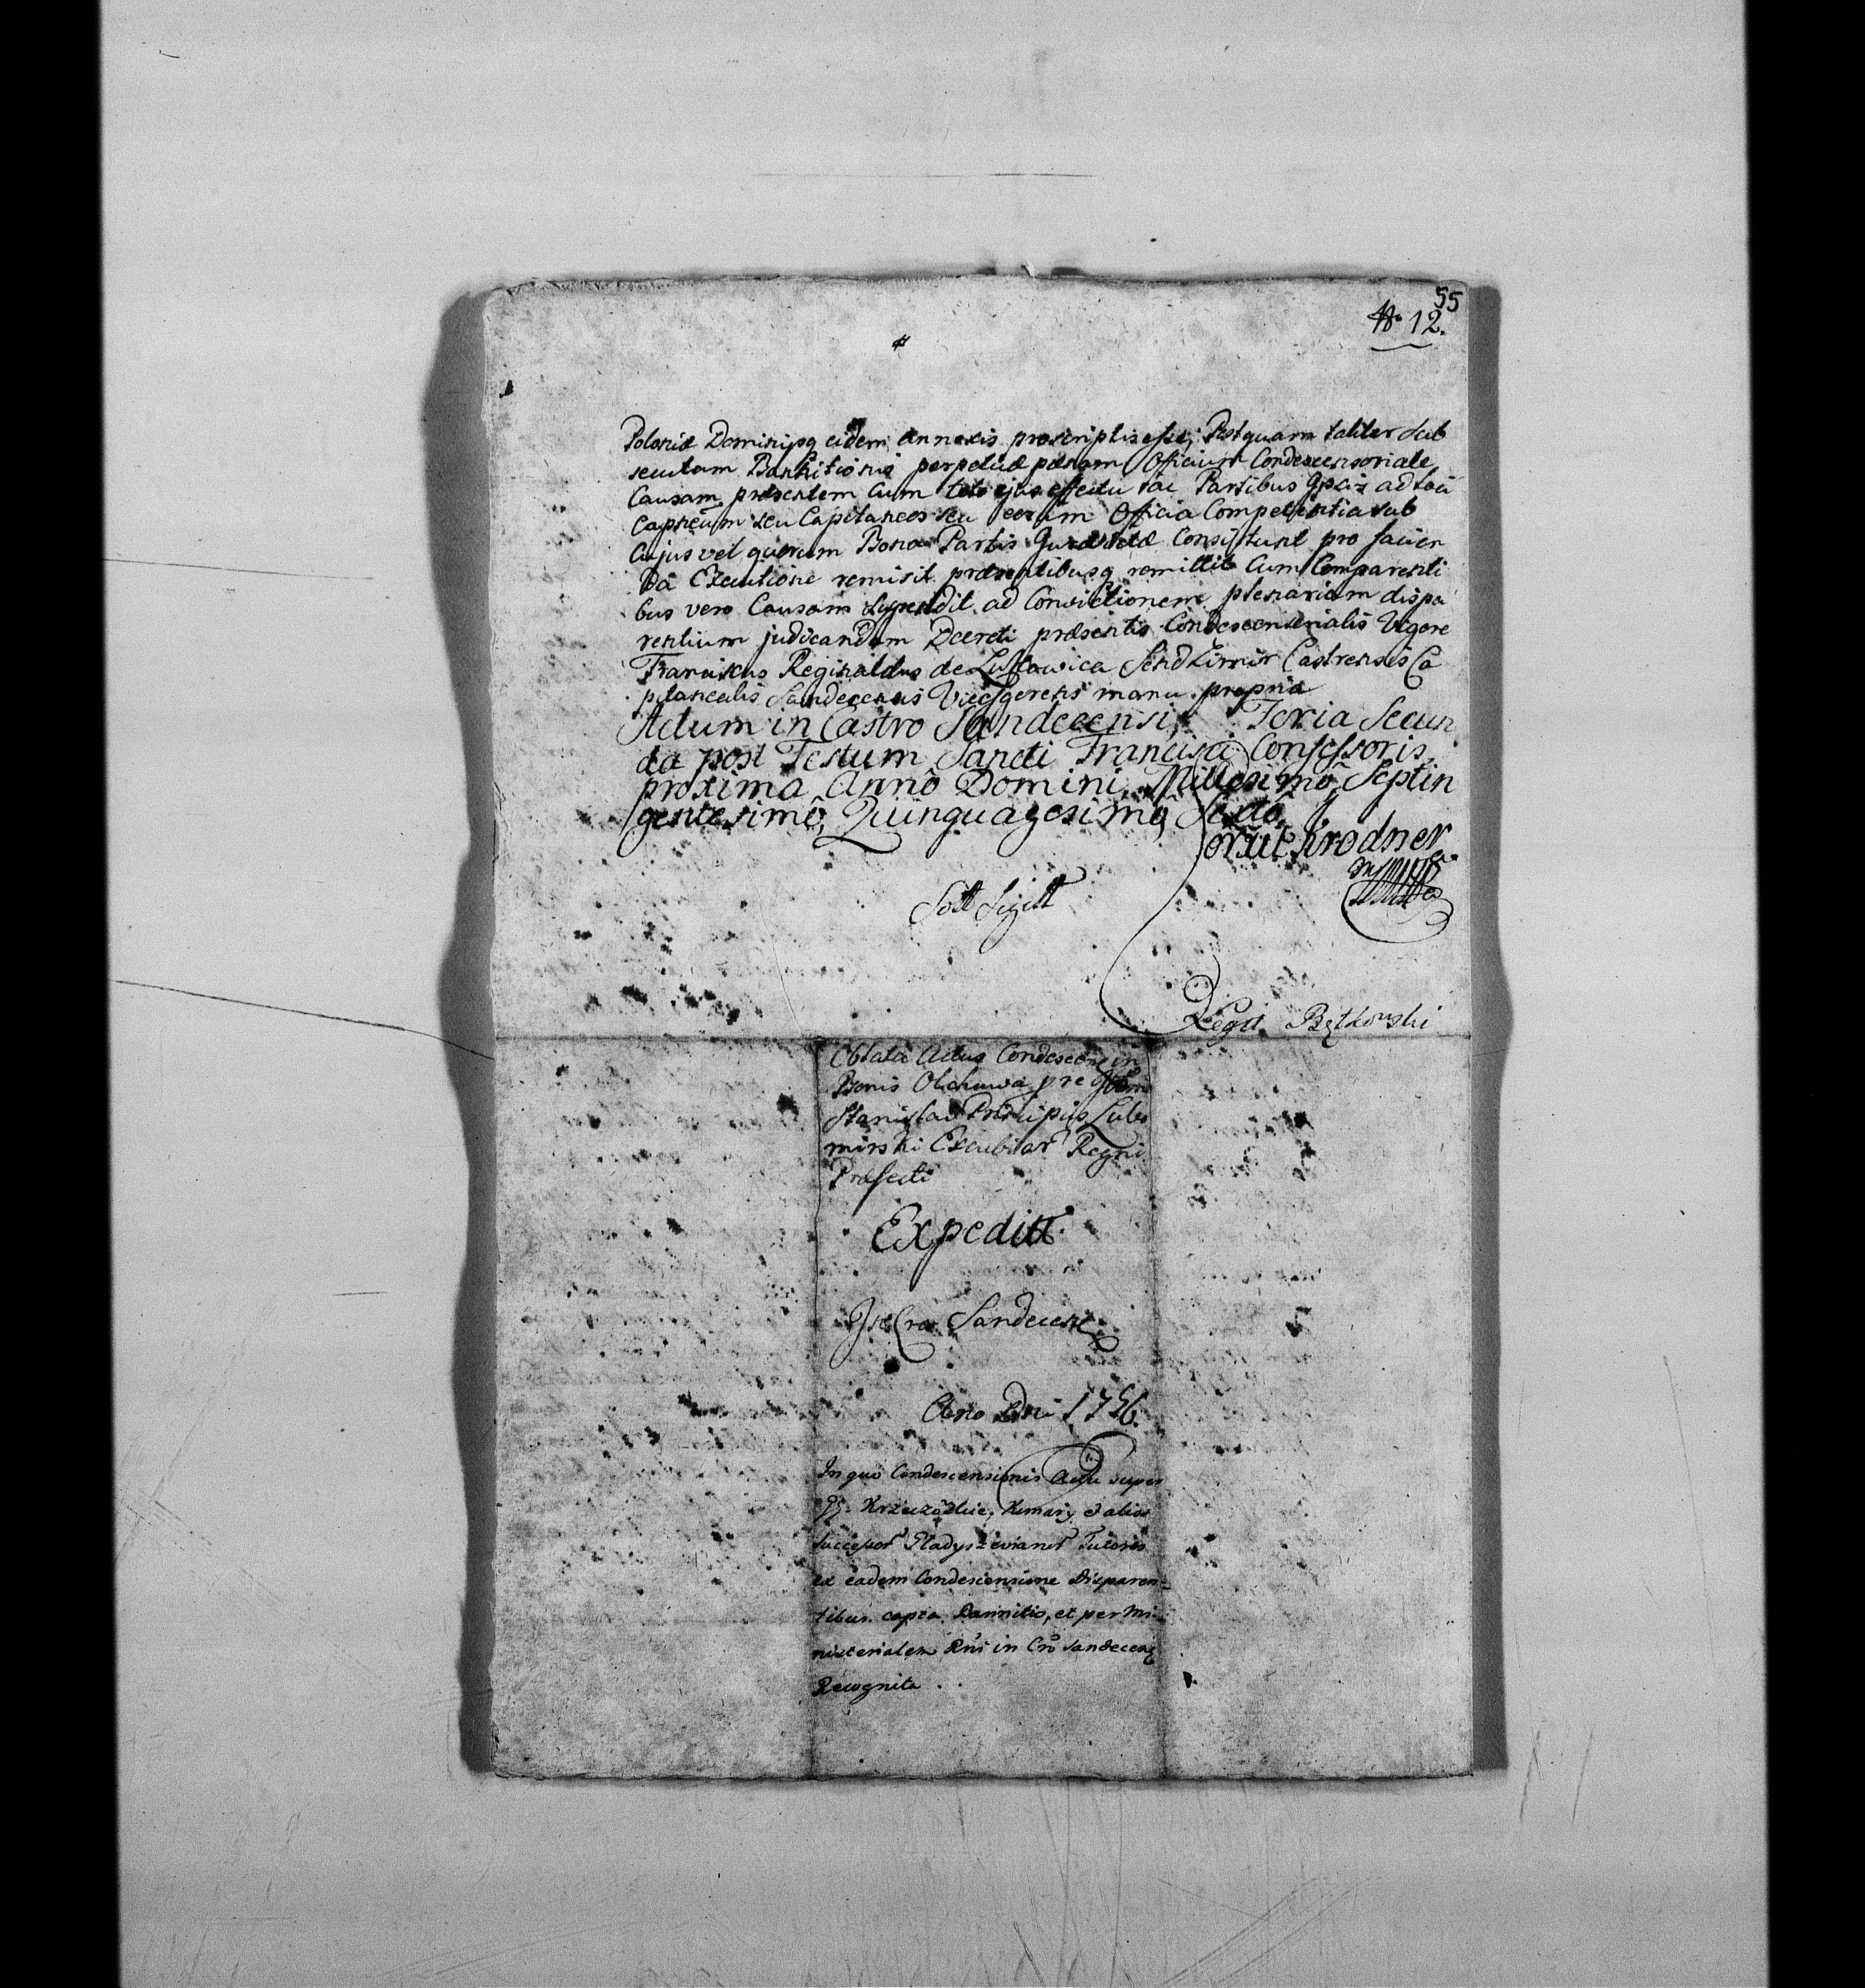 55
No 12.
Poloniæ Dominijsq eidem annexis proscriptis esse; Postquam taliter sub
secutam Bannitionis perpetuæ pœnam Officium Condescensoriale
Causam præsentem Cum toto ejus effectu ac Partibus ad loci
Capneum seu Capitaneos seu eorum Officia Competentia sub
Cujus vel quorum Bona Partis Consistunt pro facien
da Executione remisit præsentibusq remittit Cum Comparenti
bus vero Causam suspendit ad Convictionem plenariam dispa
rentium judicandam Decreti præsentis Condescensorialis Vigore
Franciscus Reginaldus de Sendzimir Castrensis Ca
pitanealis Sandecensis Vicesgerens manu propria
Actum in Castro Sandecensi, Feria Secun
da post Festum Sancti Francisci Confessoris
proxima Anno Domini, Millesimo, Septin
gentesimo, Quinquagesimo, Sexto,
Brodner
Sott Sigitt
Legit Bętkowski
Oblata Actus Condescens in
Bonis Olchawa
Stanislai Principis Lubo
mirski Excubiar Regni
Præfecti
Expeditt
In Cro Sandecen
Ano Dni 1756.
In quo Condescensionis Actu super
Krzeczòdkie, Kumary et alios
successor Gladyszevianor Tutores
ex eadem Condescensione Disparen=
tibus capta Bannitio, et per Mi=
nisterialem Rni in Cro Sandecen
Recognita.